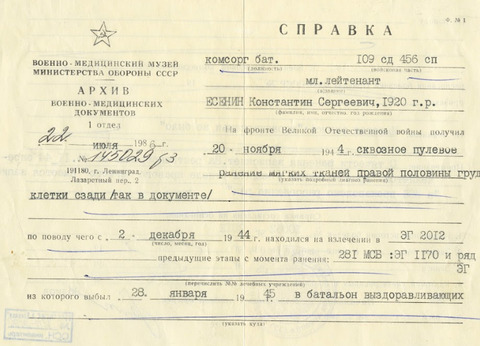 Ф. № 1
СПРАВКА
ВОЕННО-МЕДИЦИНСКИЙ МУЗЕЙ
МИНИСТЕРСТВА ОБОРОНЫ СССР
АРХИВ
ВОЕННО-МЕДИЦИНСКИХ
ДОКУМЕНТОВ
1 отдел
22 июля 1986 г.
№ 145029
191180, г. Ленинград,
Лазаретный пер., 2
комсорг бат. 109 сд 456 сп
(должность) (воинская часть)
мл.лейтенант
(звание)
ЕСЕНИН Константин Сергеевич, 1920 г.р.
(фамилия, имя, отчество, год рождения)
На фронте Великой Отечественной войны получил
20 ноября 1944 г. сквозное пулевое
ранение мягких тканей правой половины груд
(указать подробный диагноз ранения)
клетки сзади /так в документе/
по поводу чего с 2 декабря 1944 г. находился на излечении в ЭГ 2012
(число, месяц, год)
предыдущие этапы с момента ранения: 281 МСВ :ЭГ 1170 и ряд
ЭГ
(перечислить №№ лечебных учреждений)
из которого выбыл 28 января 1945 г. в батальон выздоравливающих
(указать куда)